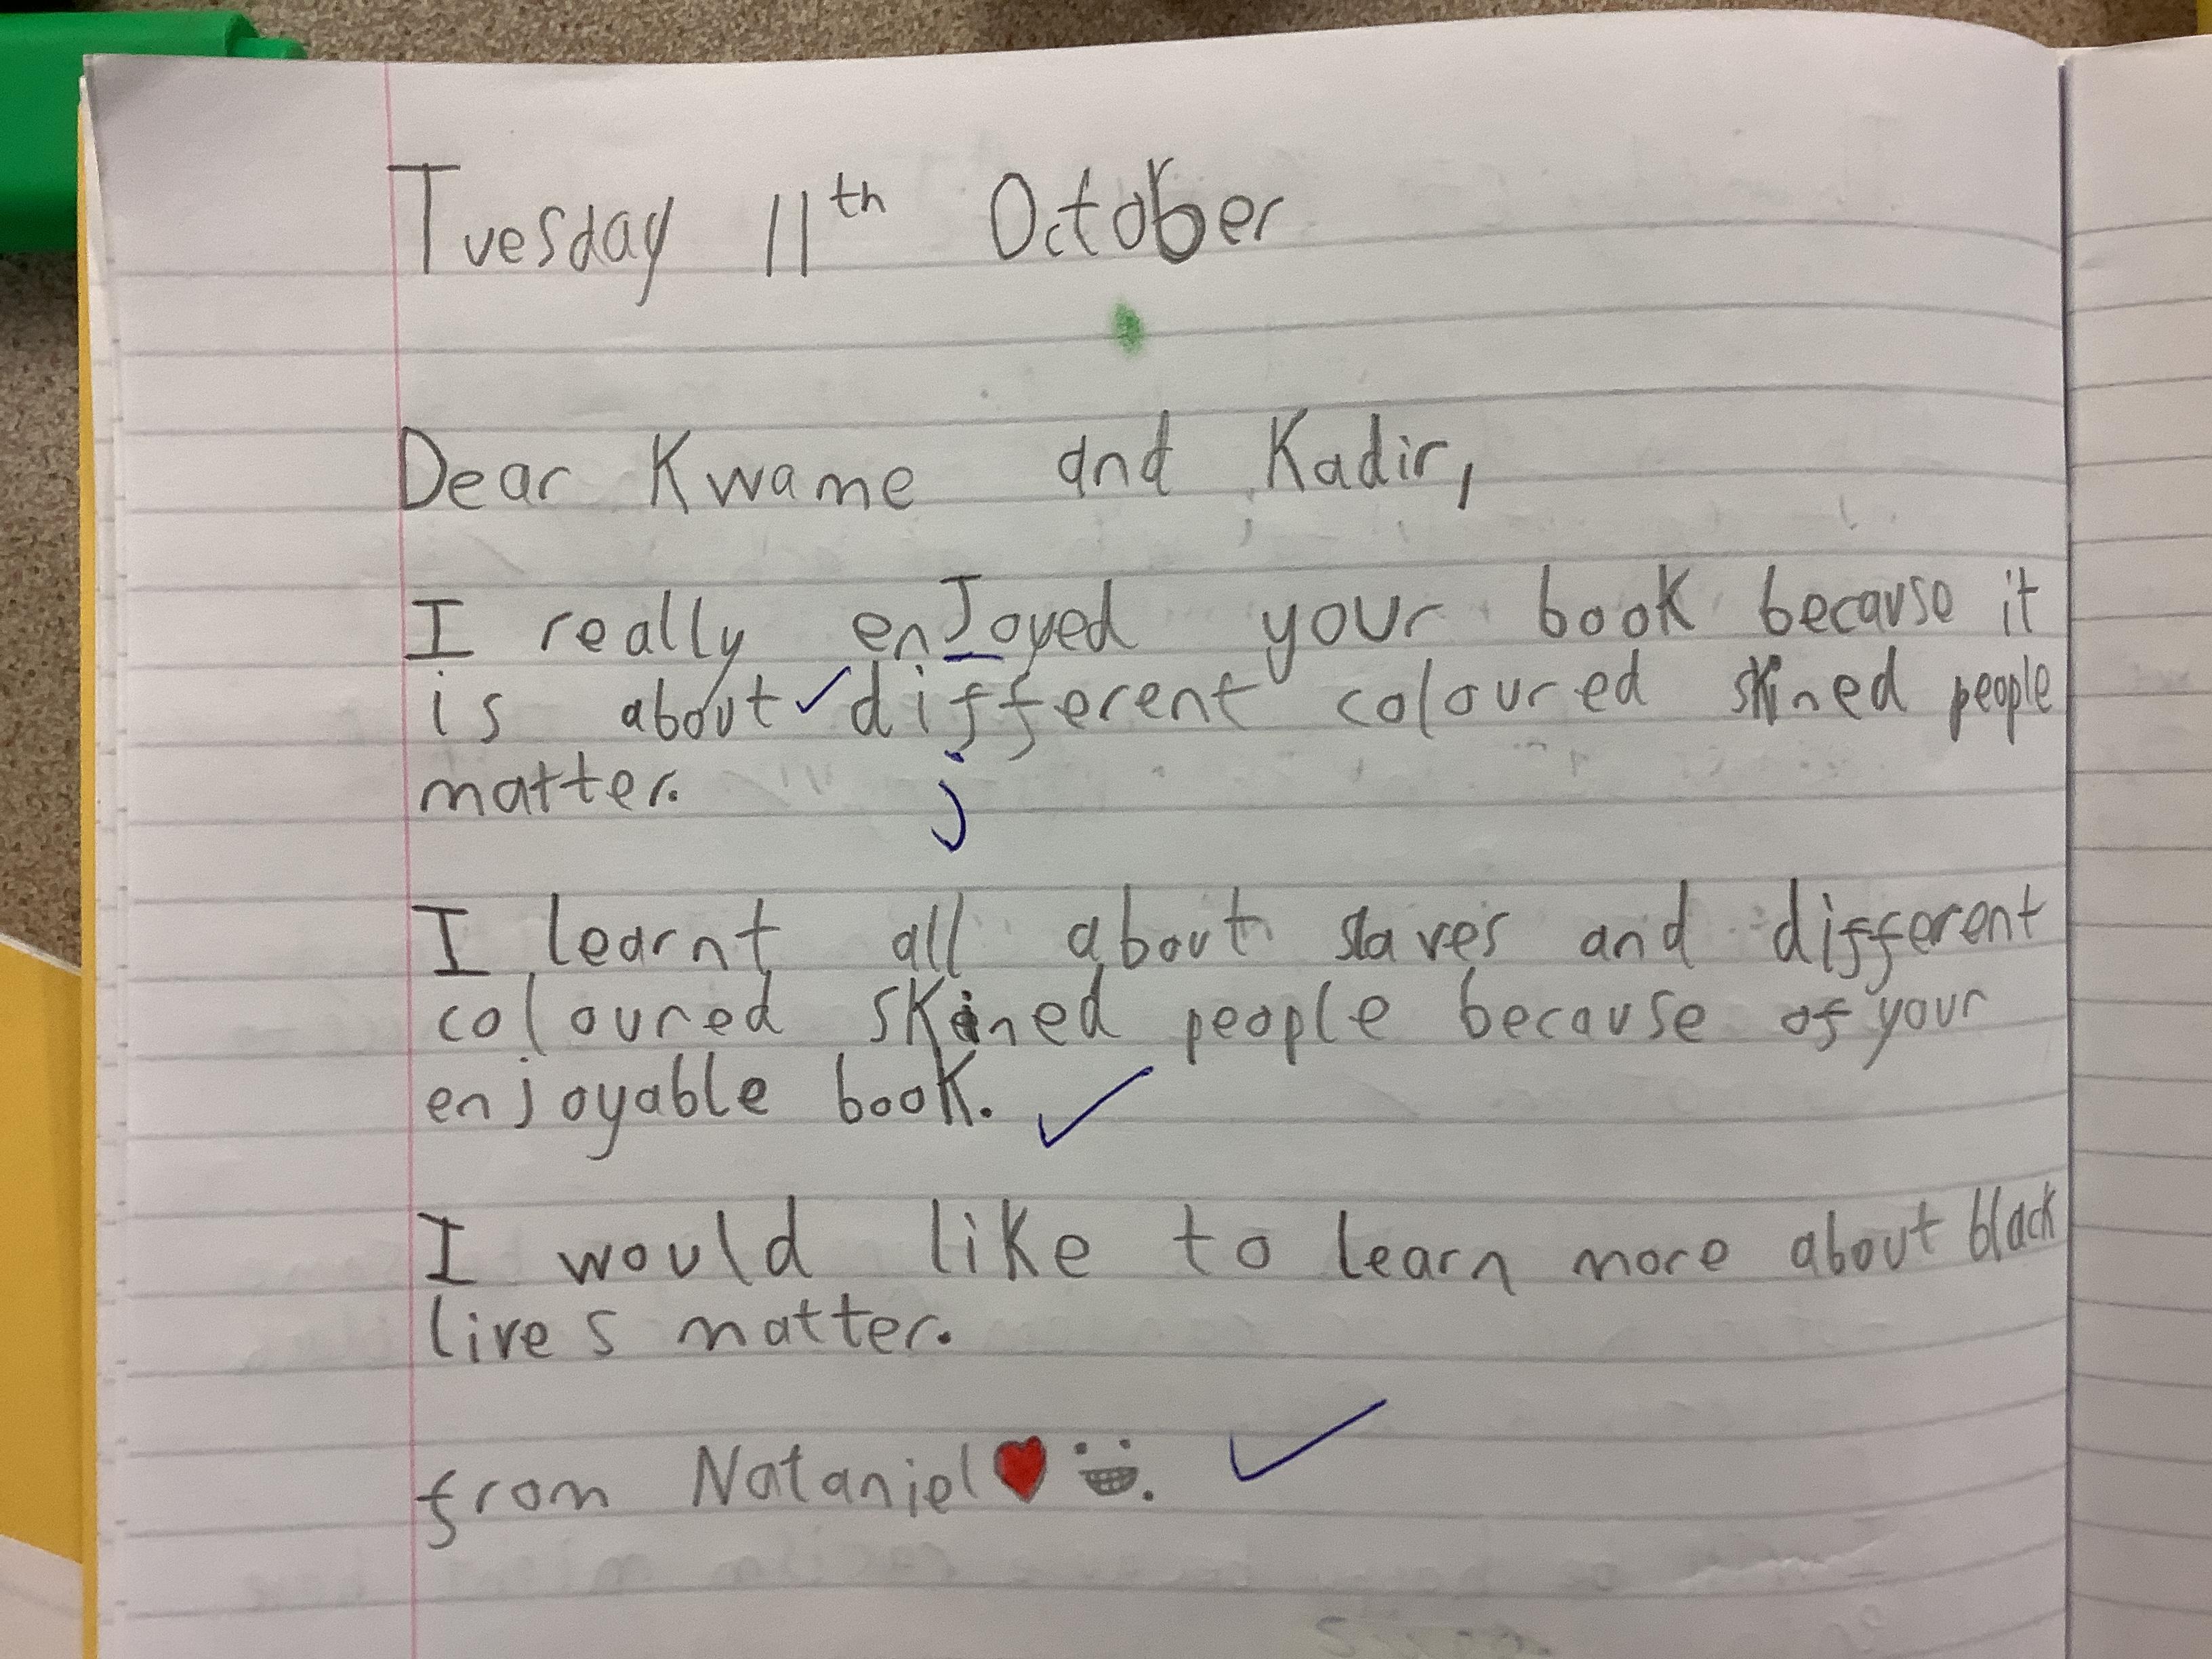 Tuesday 11th October
Dear Kwame and Kadir,
I really enJoyed your book because it
is about different coloured skined people
matter.
j
I learnt all about slaves and different
coloured skined people because of your
enjoyable book.
I would like to learn more about black
lives matter.
from Nataniel